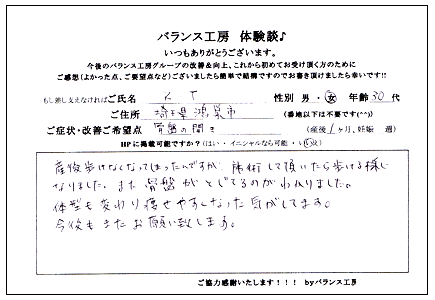 バランス工房 体験談♪
いつもありがとうございます。
今後のバランス工房グループの改善&向上、これから初めてお受け頂く方のために
ご感想(よかった点、ご要望点など)ございましたら簡単で結構ですのでお書き頂けましたら幸いです!!
もし差し支えなければご氏名 K T 性別 男・女 年齢 30 代
ご住所 埼玉県鴻巣市 (番地以下は不要です(^^))
ご症状・改善ご希望点 骨盤の開き (産後 1 ヶ月、妊娠 週)
HPに掲載可能ですか?(はい・イニシャルなら可能・いいえ)
産後歩けなくなってしまったんですが、施術して頂いたら歩ける様に
なりました。また骨盤がとじてるのがわかりました。
体型も変わり痩せやすくなった気がしてます。
今後もまたお願い致します。
ご協力感謝いたします!!! byバランス工房